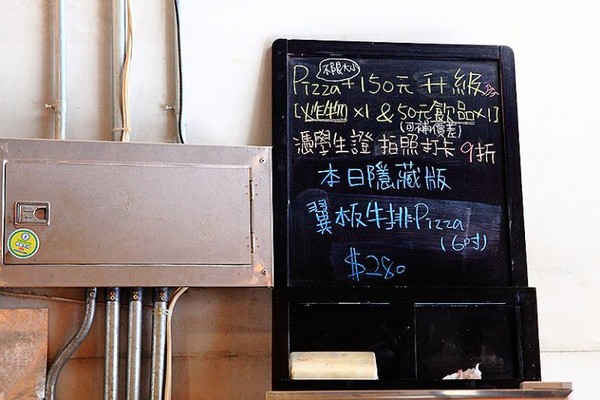 不限大小
Pizza+150元 升級
[炸物x1 & 50元飲品x1]
(可補價差)
憑學生證 拍照打卡 9折
本日隱藏版
翼板牛排Pizza
(6吋)
$280